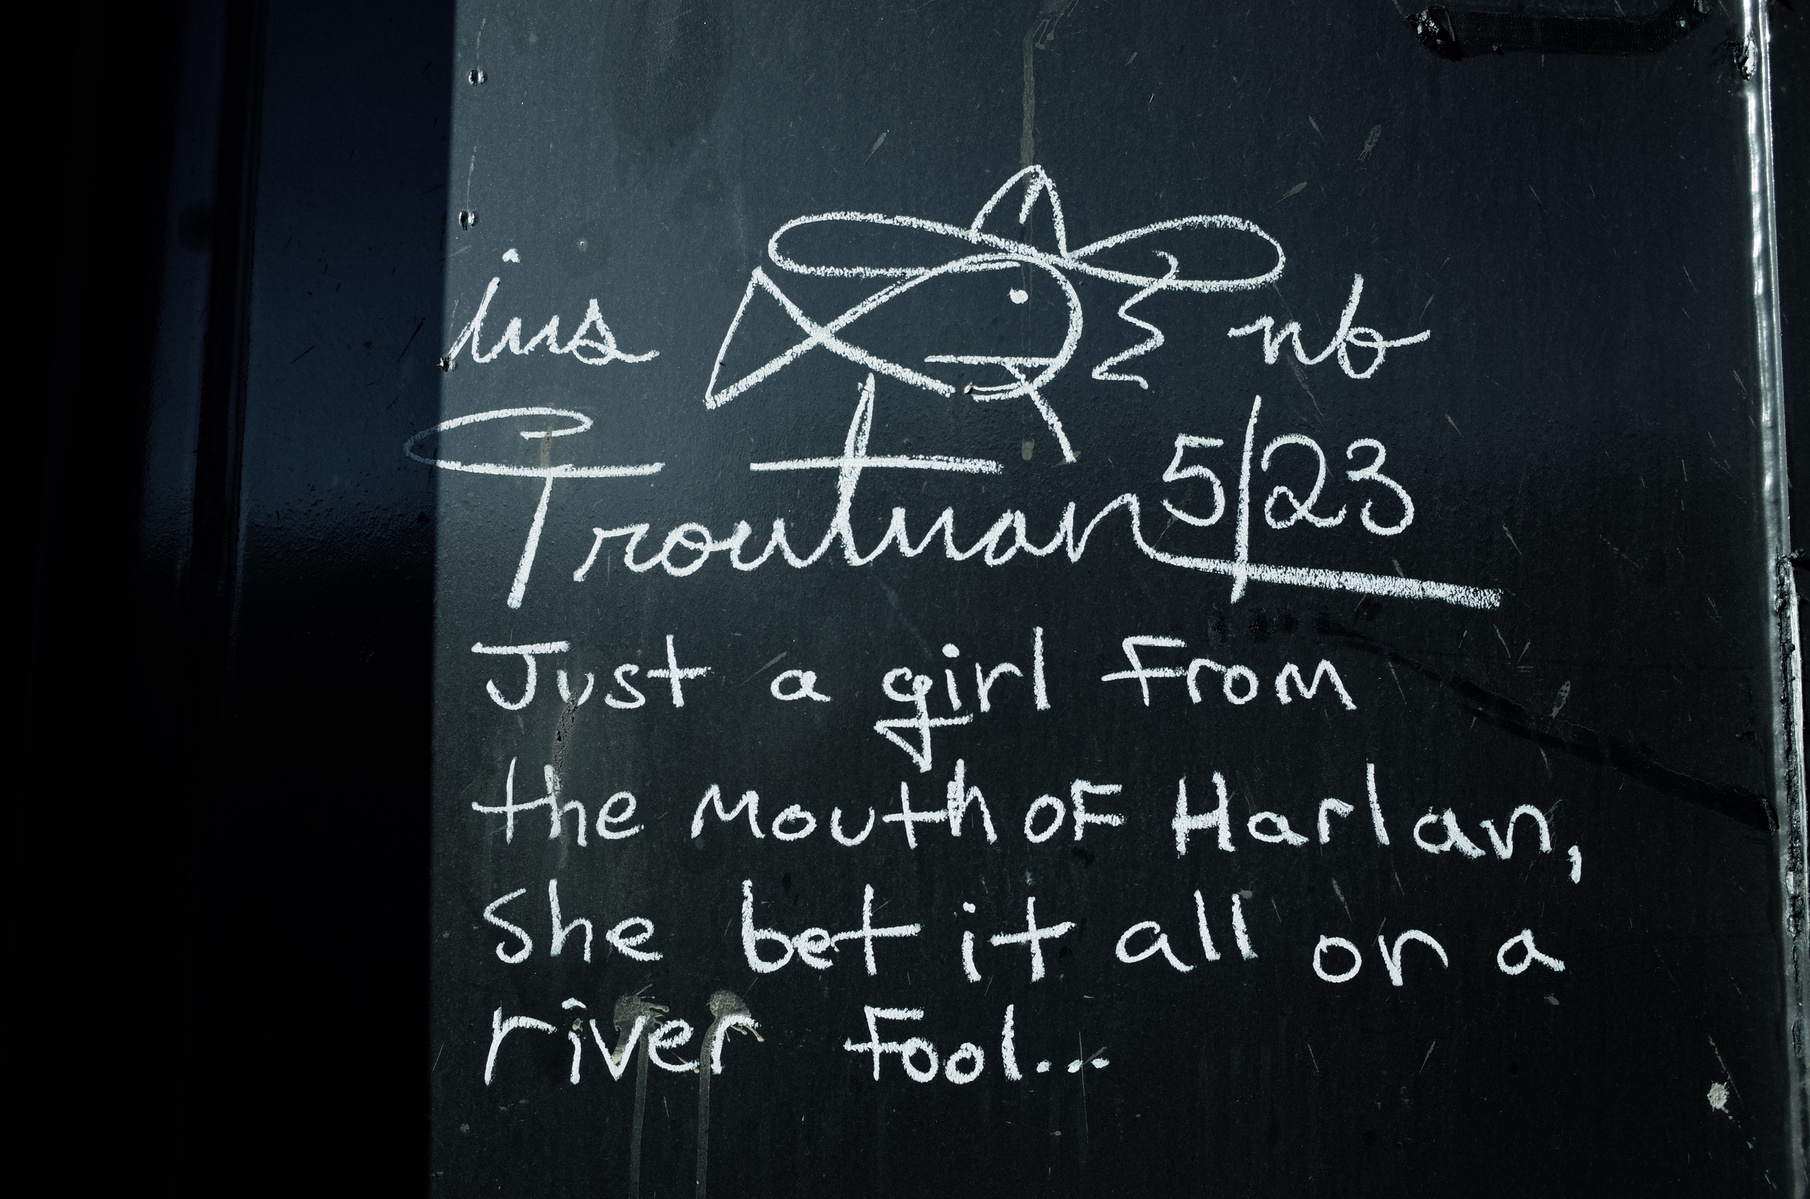 ins nb
Troutman 5/23
Just a girl from
the mouth of Harlan,
She bet it all on a
river fool...